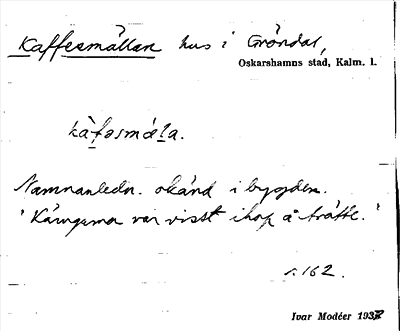 Kaffesmällan hus i Gröndal,
Oskarshamns stad, Kalm. l.
kàfəsmǽla.
Namnanledn. okänd i bygden.
"Käringarna var visst ihop å trätte."
s. 162.
Ivar Modéer 1937